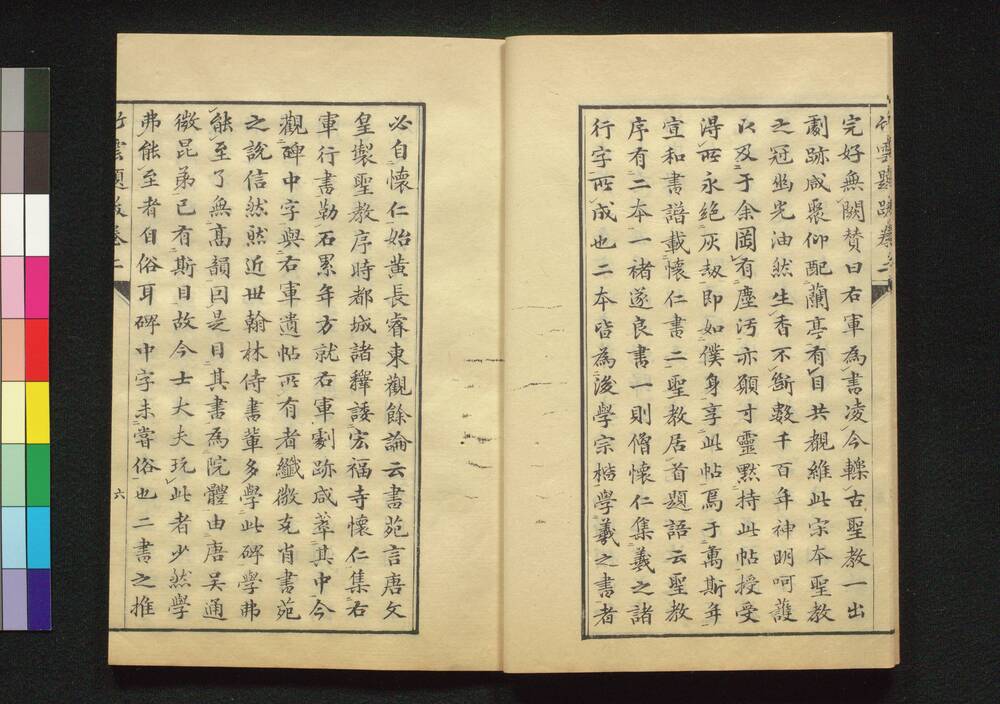 竹雲題跋卷二
完好無闕贊曰右軍為書凌今轢古聖教一出
劇跡咸聚仰配蘭亭有目共覩維此宋本聖教
之冠幽光油然生香不斷數千百年神明呵護
以及于余罔有塵汚亦願寸靈黙持此帖授受
得所永絶灰劫即如僕身享此帖焉于萬斯年
宣和書譜載懷仁書二聖教居首題語云聖教
序有二本一褚遂良書一則僧懷仁集羲之諸
行字所成也二本皆為後學宗楷學羲之書者
必自懷仁始黄長睿東觀餘論云書苑言唐文
皇製聖教序時都城諸釋諉宏福寺懷仁集右
軍行書勒石累年方就右軍劇跡咸萃其中今
觀碑中字與右軍遺帖所有者纖微克肖書苑
之說信然然近世翰林侍書輩多學此碑學弗
能至了無高韻因是目其書為院體由唐吳通
微昆弟已有斯目故今士大夫玩此者少然學
弗能至者自俗耳碑中字未嘗俗也二書之推
竹雲題跋卷二
六